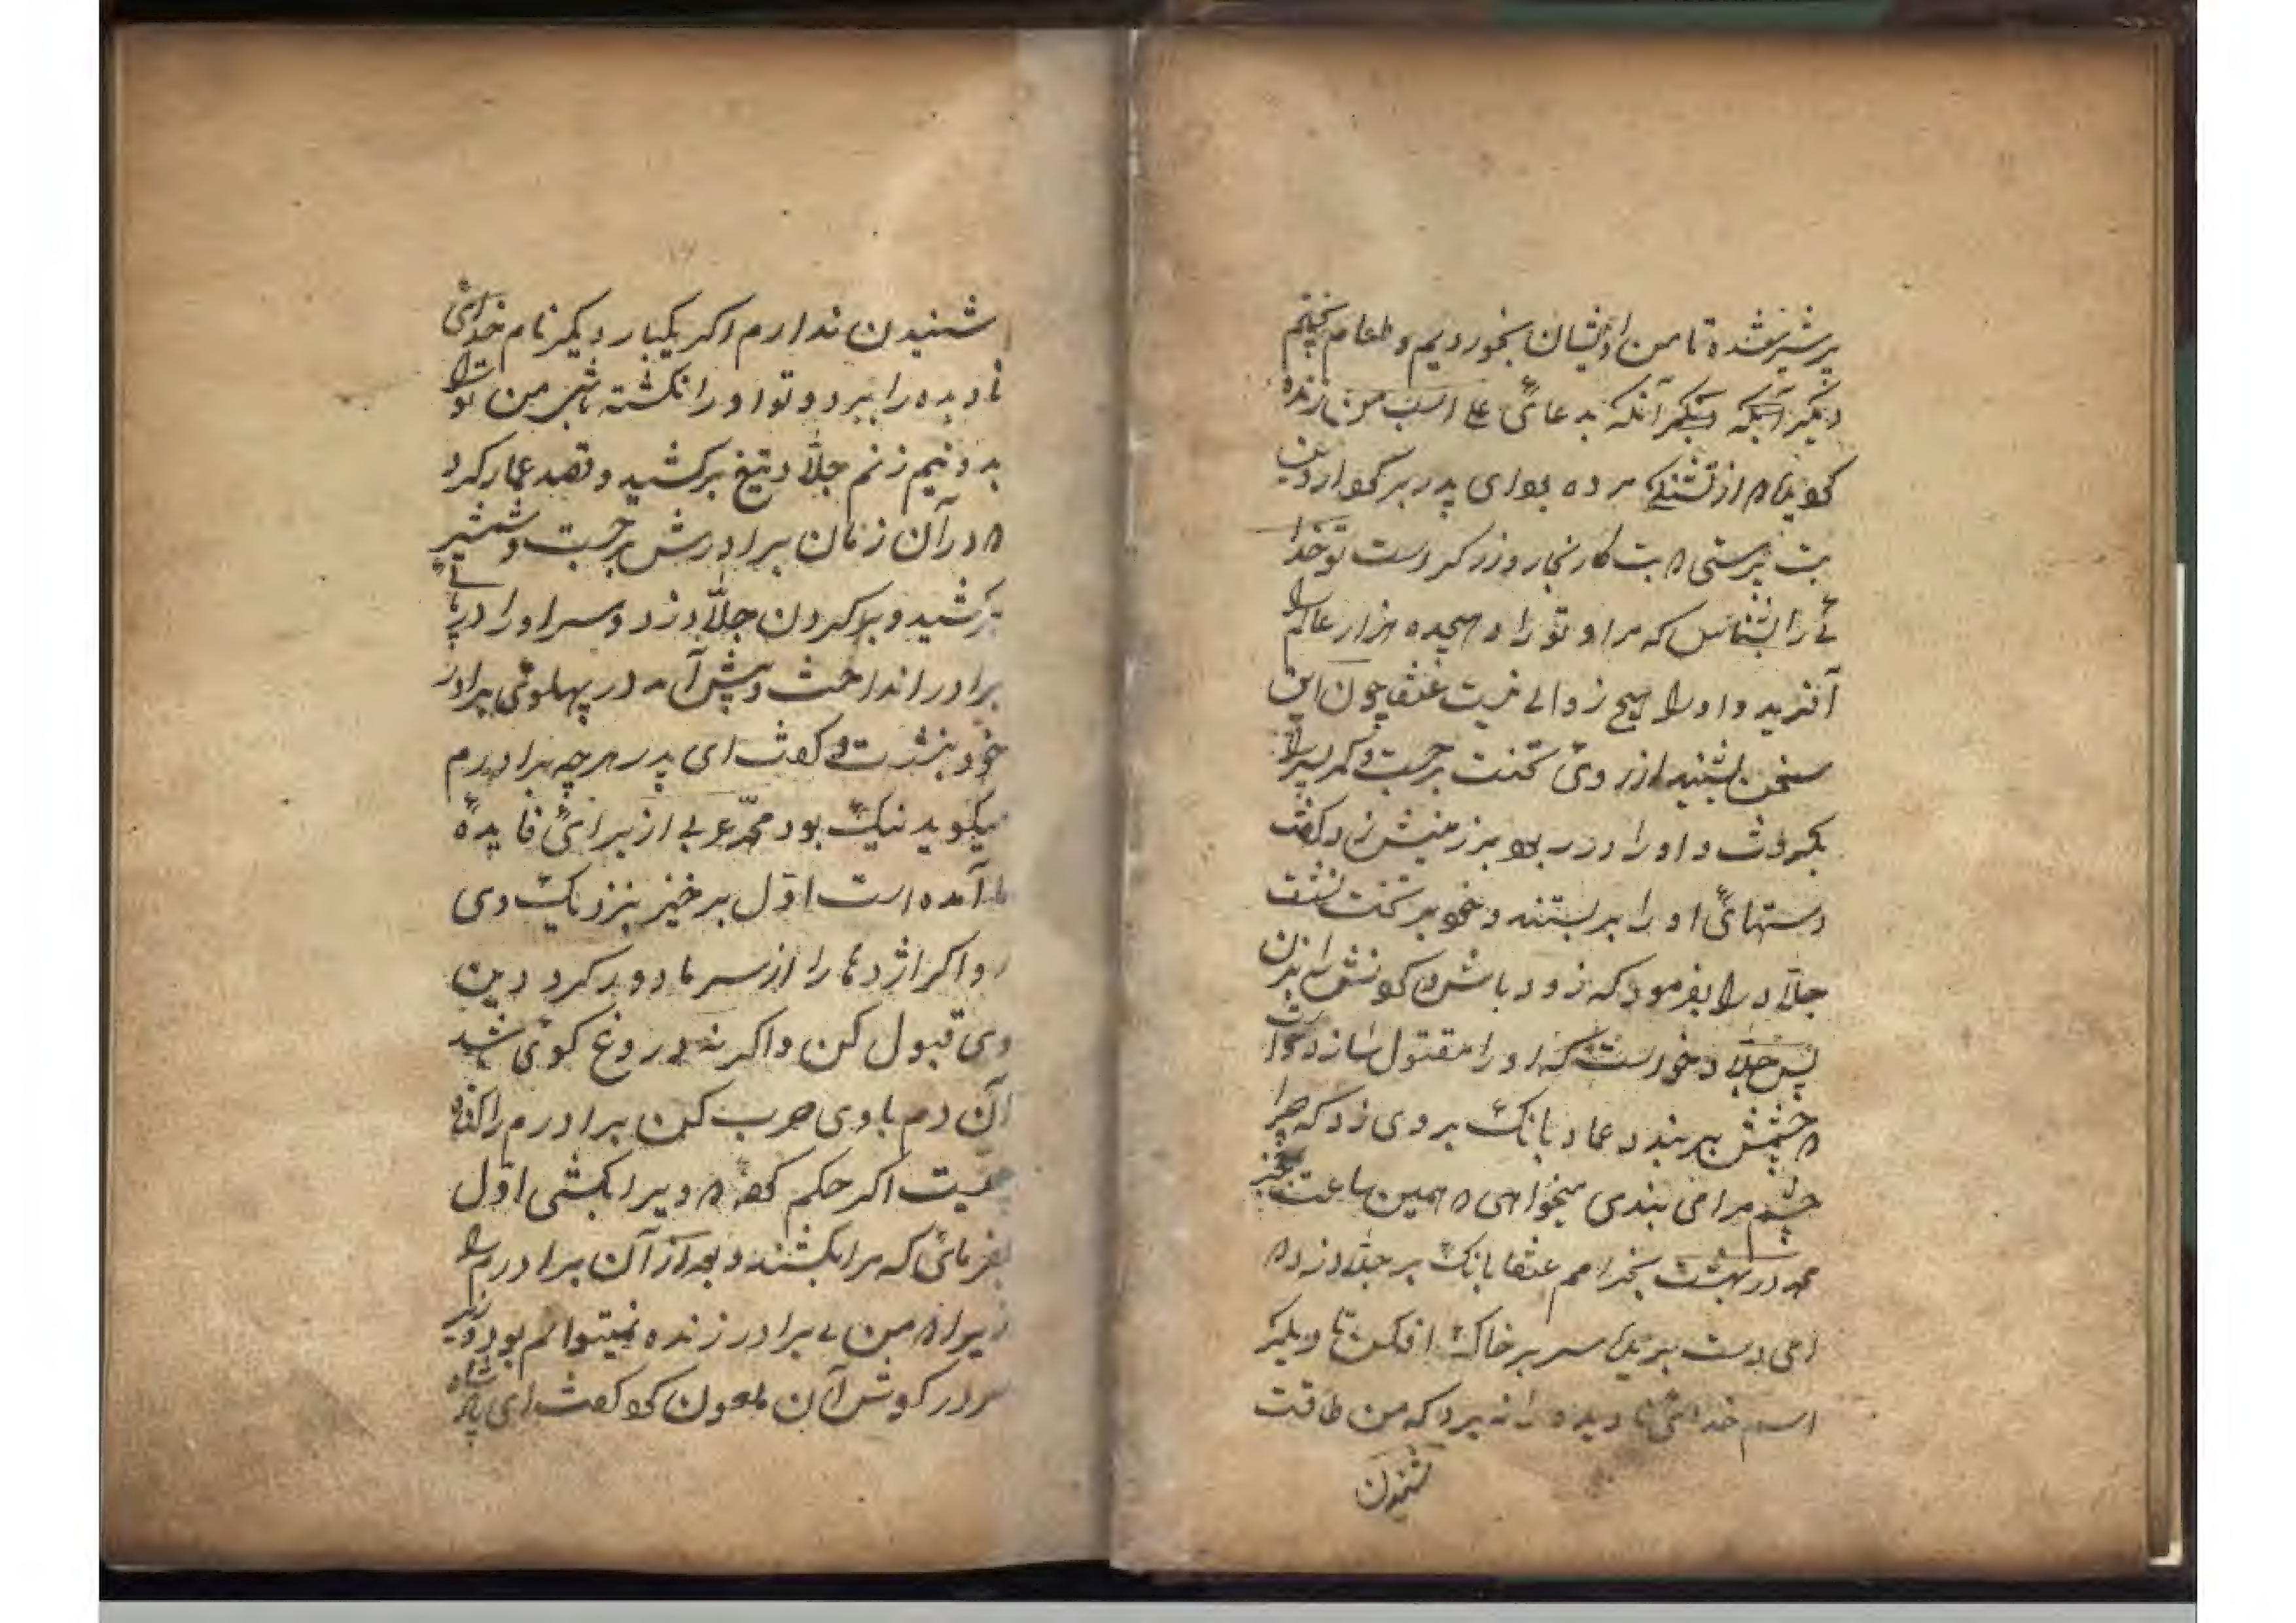 پر شیر شده تا من و ایشان بخوردیم و طعام پختیم
دیگر آنکه دیگر آنکه بدعائی علی اسب من زنده
کویا ۸ از تشنکے مرده بود ای پدر بزرکوار دین
بت پرستی ۸ بت کار نجار و زرکر است تو خدا
ئے را بشناس که مرا و تو را و هیجده هزار عالم را
آفرید و او را هیچ زوالے نیست عنقا چون این
سخن بشنید از روی تخت برجست و کمر پسر را
بکرفت و او را در ربود بر زمینش زد و کفت
دستهائی او را بر بستند و خود بر تخت نشت
جلاد را بفرمود که زود باش کردنش را بزن
پس جلاد خواست که او را مقتول سازد خواست
۸ چشمش بر بندد عماد بانک بر وی زد که چرا
چشم مرا می بندی میخواهی ۸ همین ساعت
محمد در بهشت بخرامم عنقا بانک بر جلاد زد ۸
امی دست سر بر خاک افکن تا دیکر
اسم خدائی نادیده را نه برد که من طاقت
شنیدن
شنیدن ندارم اکر یکبار دیکر نام خدائی
نادیده را ببرد و تو او را نکشته باشی من تو را
بدو نیم زنم جلاد تیغ برکشید و قصد عماد کرد
۸ در آن زمان برادرش برجست و شمشیر
برکشید و بر کردن جلاد زد و سر او را در پائے
برادر انداخت و پیش آمد در پهلوئی برادر
خود بنشست و کفت ای پدر هر چه برادرم
میکوید نیک بود محمد عربی از برائی فایده
ما آمده است اول برخیز بنزدیک وی
رو اکر اژدها را از سر ما دور کرد دین
وی قبول کن و اکر نه دروغ کوی باشد
آن دم با وی حرب کن برادرم را کناه
نیست اکر حکم کنی ۸ ویرا بکشی اول
بفرمائی که مرا بکشند و بعد از آن برادرم را
زیرا ۸ من بے برادر زنده نمیتوانم بود وزیر
سر در کوش آن ملعون کرد کفت ای پادشاه